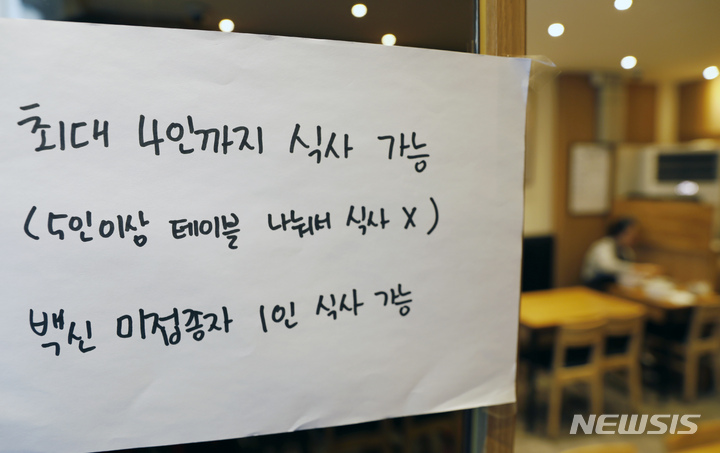 최대 4인까지 식사 가능
(5인이상 테이블 나눠서 식사 X)
백신 미접종자 1인 식사 가능
NEWSIS